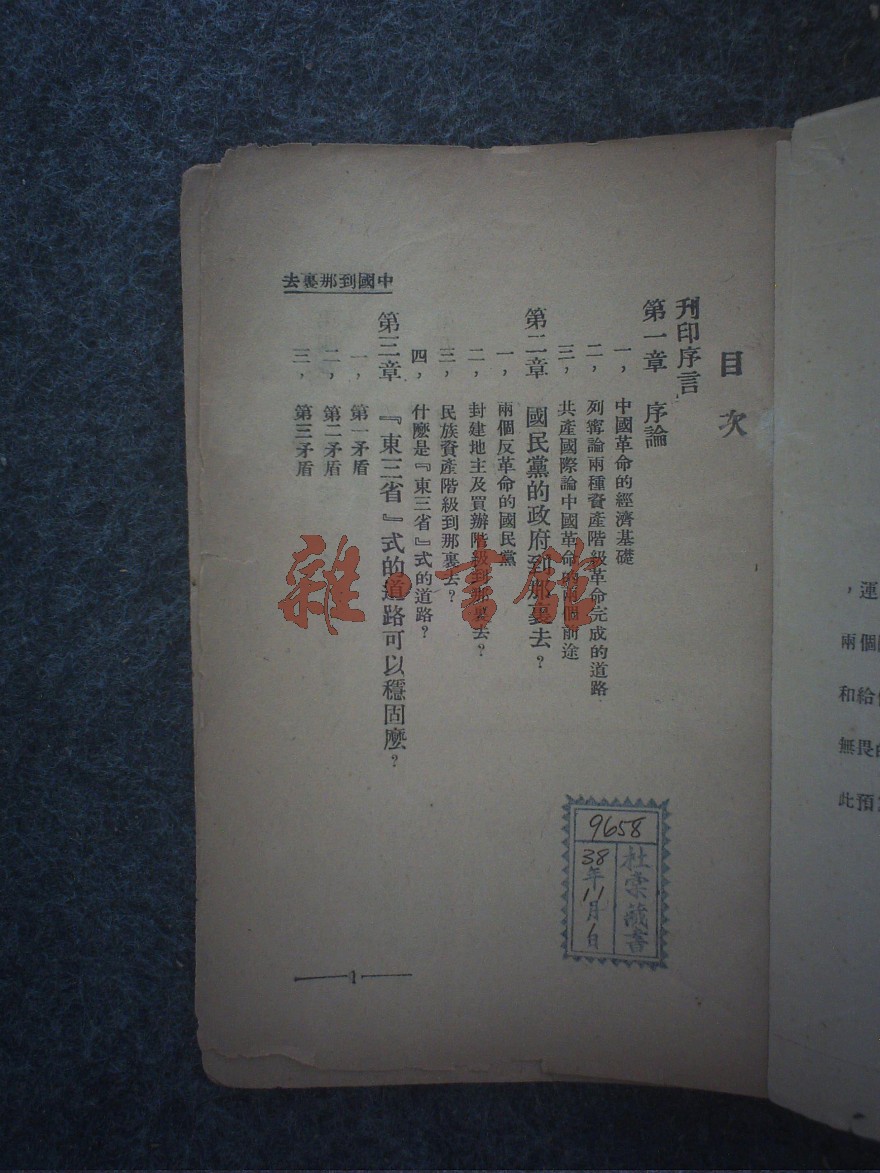 目次
刊印序言
第一章 序論
一，中國革命的經濟基礎
二，列甯論兩種資產階級革命完成的道路
三，共產國際論中國革命的兩個前途
第二章 國民黨的政府到那裏去？
一，兩個反革命的國民黨
二，封建地主及買辦階級到那裏去？
三，民族資產階級到那裏去？
四，什麽是『東三省』式的道路？
第三章 『東三省』式的道路可以穩固麽？
一，第一矛盾
二，第二矛盾
三，第三矛盾
中國到那裏去
1
9658
杜棠藏書
38年11月1日
雜·書館
，運
兩個
和給
無畏
此預